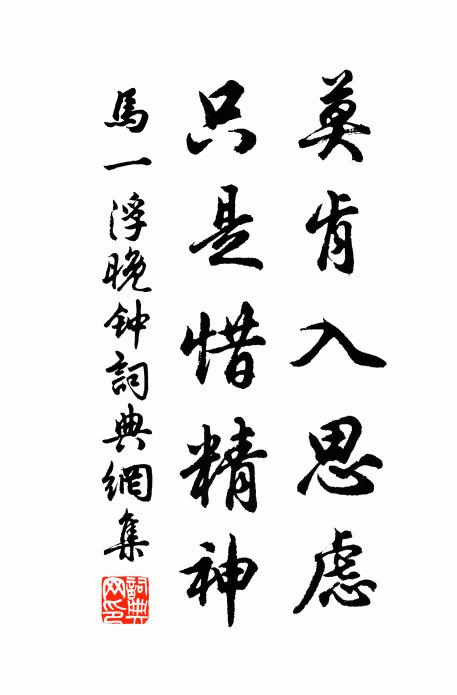 莫肯入思慮
只是惜精神
馬一浮晚钟詞典網集
詞典网印